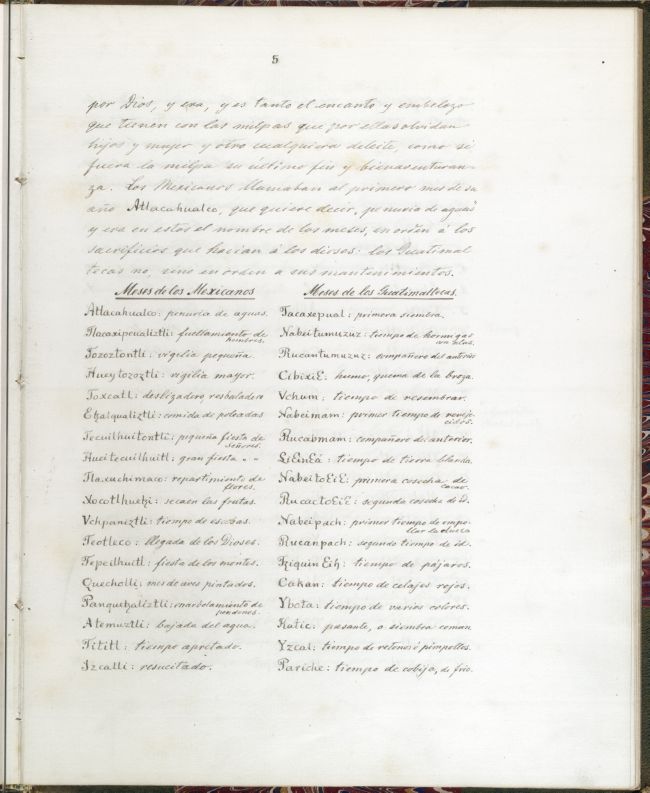 5
por Dios, y era, y es tanto el encanto y embelezo
que tienen con las milpas que por ellas olvidan
hijos y mujer y otro cualquiera deleite, como si
fuera la milpa su último fin y bienaventuran-
za. Los Mexicanos llamaban al primero mes de su
año Atlacahualco, que quiere decir, penuria de aguas
y era en estos el nombre de los meses, en orden á los
sacrificios que hacian á los dioses: los Guatimal
tecas no, sino en orden a sus mantenimientos.
Meses de los Mexicanos
Atlacahualco: penuria de aguas.
Tlacaxipeualiztli: fuellamiento de
hombres.
Tozoztontli: vigilia pequeña.
Hueytozoztli: vigilia mayor.
Toxcatl: deslizadero, resbaladero
Etzalqualiztli: comida de poleadas
Tecuilhuitontli: pequeña fiesta de
señores.
Hueitecuilhuitl: gran fiesta " "
Tlaxuchimaco: repartimiento de
flores.
Xocotlhuetzi: secaen las frutas.
Vchpaniztli: tiempo de escobas.
Teotleco: llegada de los Dioses.
Tepeilhuitl: fiesta de los montes.
Quecholli: mes de aves pintados.
Panquetzaliztli: enarbolamiento de
pendones.
Atemuztli: bajada del agua.
Tititl: tiempo apretado.
Izcalli: resucitado.
Meses de los Guatimaltecas.
Tacaxepual: primera siembra.
Nabeitumuzuz: tiempo de hormigas
con alas.
Rucantumuzuz: compañero del anterior
CibixiE: humo, quema de la broza.
Vchum: tiempo de resembrar.
Nabeimam: primer tiempo de reveje-
cidos.
Rucabmam: compañero de anterior.
LiEinEá: tiempo de tierra blanda.
NabeitoEiE: primera cosecha de
cacao.
RucactoEiE: segunda cosecha de id.
Nabeipach: primer tiempo de empo-
llar la clueca
Rucanpach: segundo tiempo de id.
TziquinEih: tiempo de pájaros.
Cakan: tiempo de celajes rojos.
Ybota: tiempo de varios colores.
Katic: pasante, o siembra comun
Yzcal: tiempo de retonos ó pimpollos.
Pariche: tiempo de cobija, de frio.